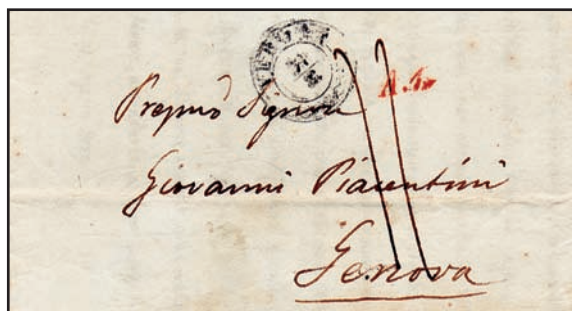 Pregmo Signore
Giovanni Piacentini
Genova